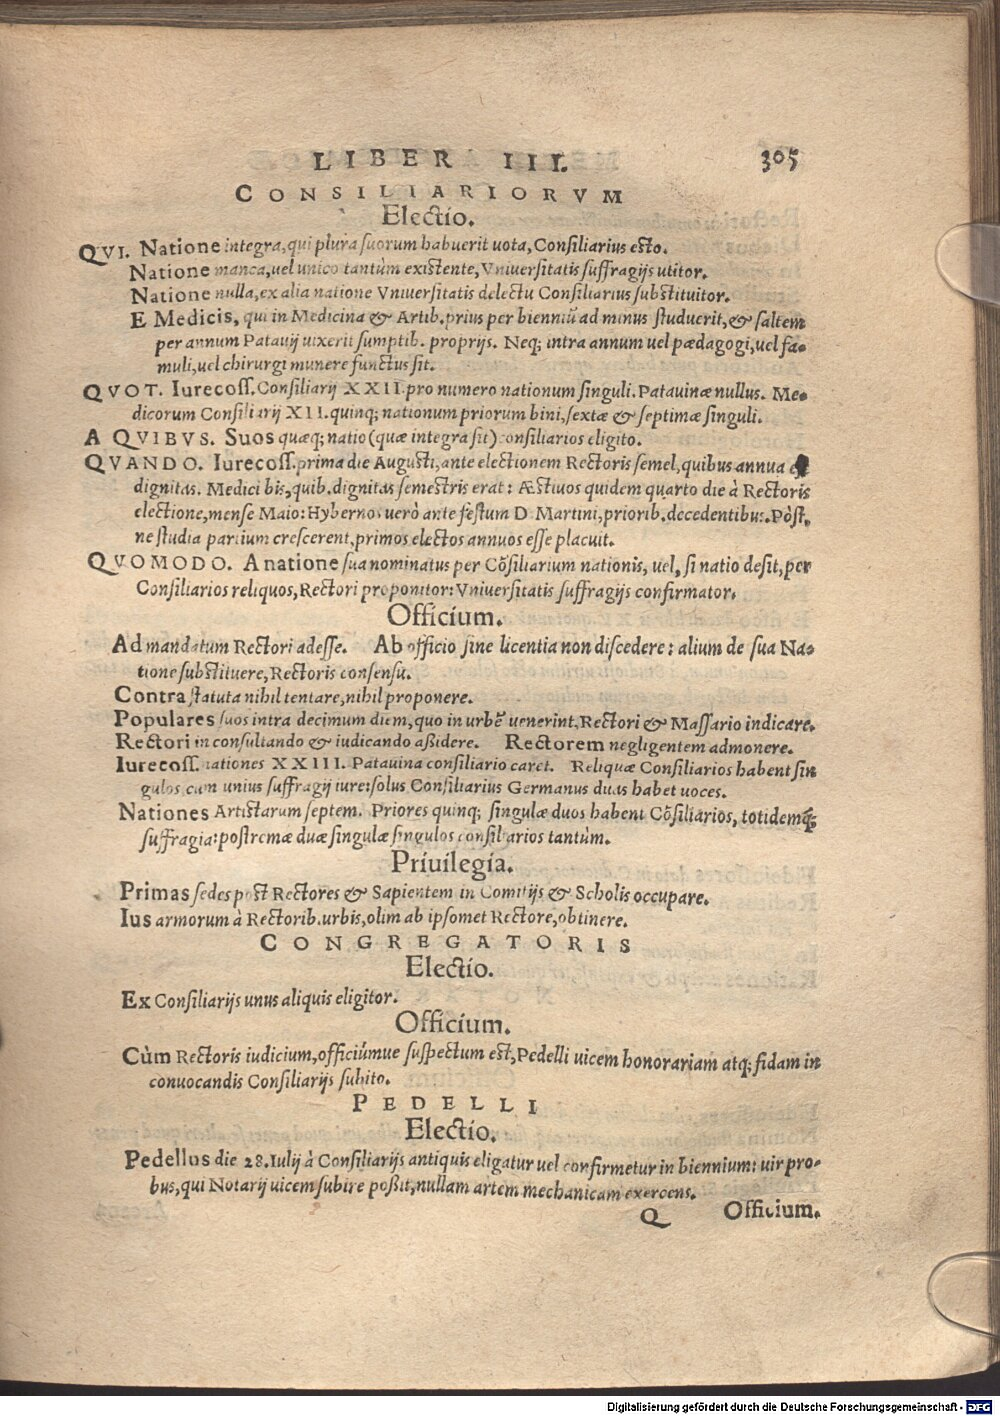 LIBER III. 305
CONSILIARIORVM
Electio.
QVI. Natione integra, qui plura suorum habuerit uota, Consiliarius esto.
Natione manca, uel unico tantùm existente, Vniuersitatis suffragijs utitor.
Natione nulla, ex alia natione Vniuersitatis delectu Consiliarius substituitor.
E Medicis, qui in Medicina & Artib. prius per bienniũ ad minus studuerit, & saltem
per annum Patauij uixerit sumptib. proprijs. Neq; intra annum uel pædagogi, uel fa-
muli, uel chirurgi munere functus sit.
QVOT. Iurecoss. Consiliarij XXII. pro numero nationum singuli. Patauinæ nullus. Me-
dicorum Consiliarij XII. quinq; nationum priorum bini, sextæ & septimæ singuli.
A QVIBVS. Suos quæq; natio (quæ integra sit) consiliarios eligito.
QVANDO. Iurecoss. prima die Augusti, ante electionem Rectoris semel, quibus annua
dignitas. Medici bis, quib. dignitas semestris erat: Æstiuos quidem quarto die à Rectoris
electione, mense Maio: Hybernos uerò ante festum D. Martini, priorib. decedentibus. Pòst,
ne studia partium crescerent, primos electos annuos esse placuit.
QVOMODO. A natione sua nominatus per Cõsiliarium nationis, uel, si natio desit, per
Consiliarios reliquos, Rectori proponitor: Vniuersitatis suffragijs confirmator.
Officium.
Ad mandatum Rectori adesse. Ab officio sine licentia non discedere: alium de sua Na-
tione substituere, Rectoris consensu.
Contra statuta nihil tentare, nihil proponere.
Populares suos intra decimum diem, quo in urbẽ uenerint, Rectori & Massario indicare.
Rectori in consultando & iudicando aßidere. Rectorem negligentem admonere.
Iurecoss. nationes XXIII. Patauina consiliario caret. Reliquæ Consiliarios habent sin
gulos, cum unius suffragij iure: solus Consiliarius Germanus duas habet uoces.
Nationes Artistarum septem. Priores quinq; singulæ duos habent Cõsiliarios, totidemq́;
suffragia: postremæ duæ singulæ singulos consiliarios tantùm.
Priuilegia.
Primas sedes post Rectores & Sapientem in Comitijs & Scholis occupare.
Ius armorum à Rectorib. urbis, olim ab ipsomet Rectore, obtinere.
CONGREGATORIS
Electio.
Ex Consiliarijs unus aliquis eligitor.
Officium.
Cùm Rectoris iudicium, officiúmue suspectum est, Pedelli uicem honorariam atq; fidam in
conuocandis Consiliarijs subito.
PEDELLI
Electio.
Pedellus die 28. Iulij à Consiliarijs antiquis eligatur uel confirmetur in biennium: uir pro-
bus, qui Notarij uicem subire poßit, nullam artem mechanicam exercens.
Q Officium.
Digitalisierung gefördert durch die Deutsche Forschungsgemeinschaft - DFG